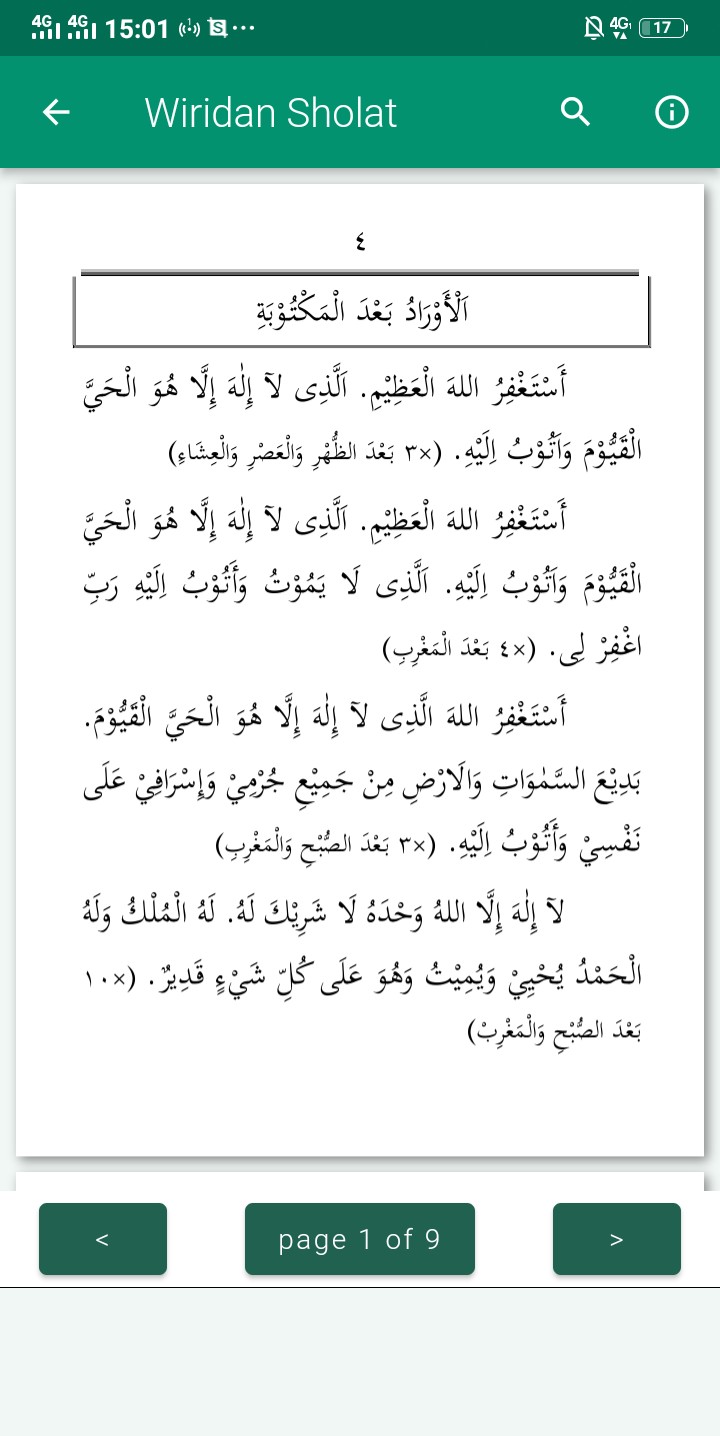 4G 4G 15:01 ... 4G 17
Wiridan Sholat
٤
اَلْأَوْرَادُ بَعْدَ الْمَكْتُوْبَةِ
أَسْتَغْفِرُ اللهَ الْعَظِيْمِ. اَلَّذِى لآ إِلٰهَ إِلَّا هُوَ الْحَيَّ
الْقَيُّوْمَ وَاَتُوْبُ اِلَيْهِ. (×٣ بَعْدَ الظُّهْرِ وَالْعَصْرِ وَالْعِشَاءِ)
أَسْتَغْفِرُ اللهَ الْعَظِيْمِ. اَلَّذِى لآ إِلٰهَ إِلَّا هُوَ الْحَيَّ
الْقَيُّوْمَ وَاَتُوْبُ اِلَيْهِ. اَلَّذِى لَا يَمُوْتُ وَأَتُوْبُ اِلَيْهِ رَبِّ
اغْفِرْ لِى. (×٤ بَعْدَ الْمَغْرِبِ)
أَسْتَغْفِرُ اللهَ الَّذِى لآ إِلٰهَ إِلَّا هُوَ الْحَيَّ الْقَيُّوْمَ.
بَدِيْعَ السَّمٰوَاتِ وَالَارْضِ مِنْ جَمِيْعِ جُرْمِيْ وَإِسْرَافِيْ عَلَى
نَفْسِيْ وَأَتُوْبُ اِلَيْهِ. (×٣ بَعْدَ الصُّبْحِ وَالْمَغْرِبِ)
لآ إِلٰهَ إِلَّا اللهُ وَحْدَهُ لَا شَرِيْكَ لَهُ. لَهُ الْمُلْكُ وَلَهُ
الْحَمْدُ يُحْيِيْ وَيُمِيْتُ وَهُوَ عَلَى كُلِّ شَيْءٍ قَدِيرٌ. (×١٠
بَعْدَ الصُّبْحِ وَالْمَغْرِبْ)
< page 1 of 9 >